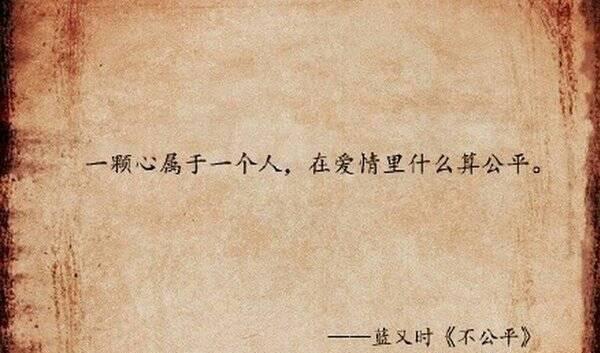 一颗心属于一个人，在爱情里什么算公平。
——蓝又时《不公平》